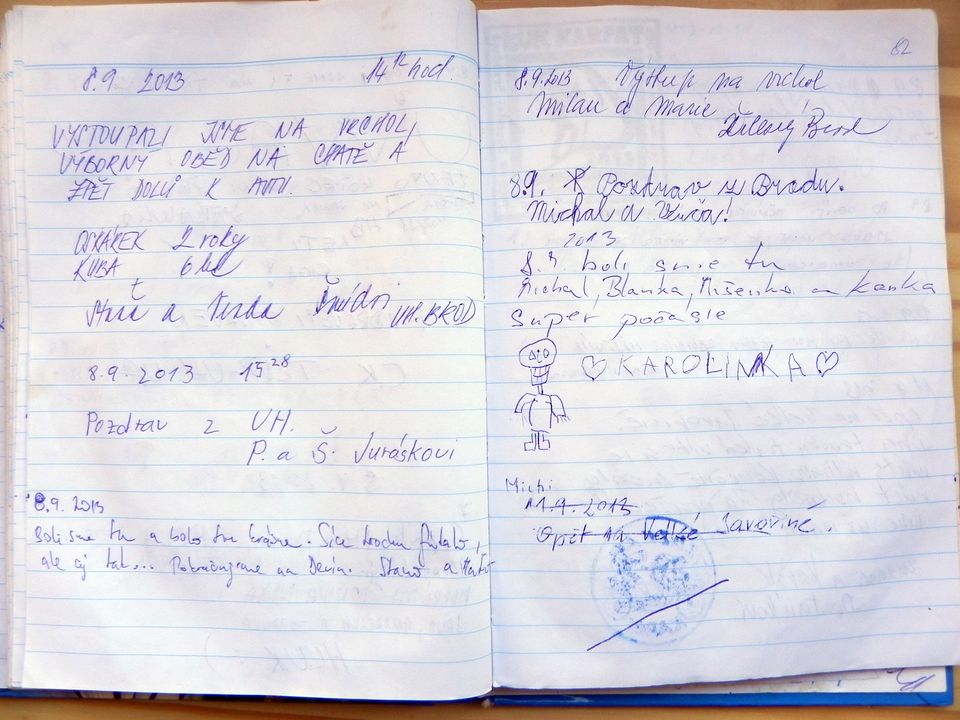 8.9. 2013 14 12 hod.
VYSTOUPALI JSME NA VRCHOL,
VÝBORNÝ OBĚD NA CHATĚ A
ZPĚT DOLŮ K AUTU.
OSKÁREK 2 roky
KUBA 6 let
a UH. BROD
8.9.2013 15 28
Pozdrav z UH.
P. a Š. Juráskovi
8.9. 2013
Boli sme tu a bolo tu krásne. Síce trochu fúkalo,
ale aj tak... Pokračujeme na Devín. a
82
8.9.2013 Výstup na vrchol
Milan a Marie
Brod
8.9. Pozdrav z Brodu.
Michal a
2013
8.9. boli sme tu
Michal, Blanka, Mišenko a Kanka
Super počasie
KAROLINKA
Michi
11.9.2013
Opět na Velké Javořině.